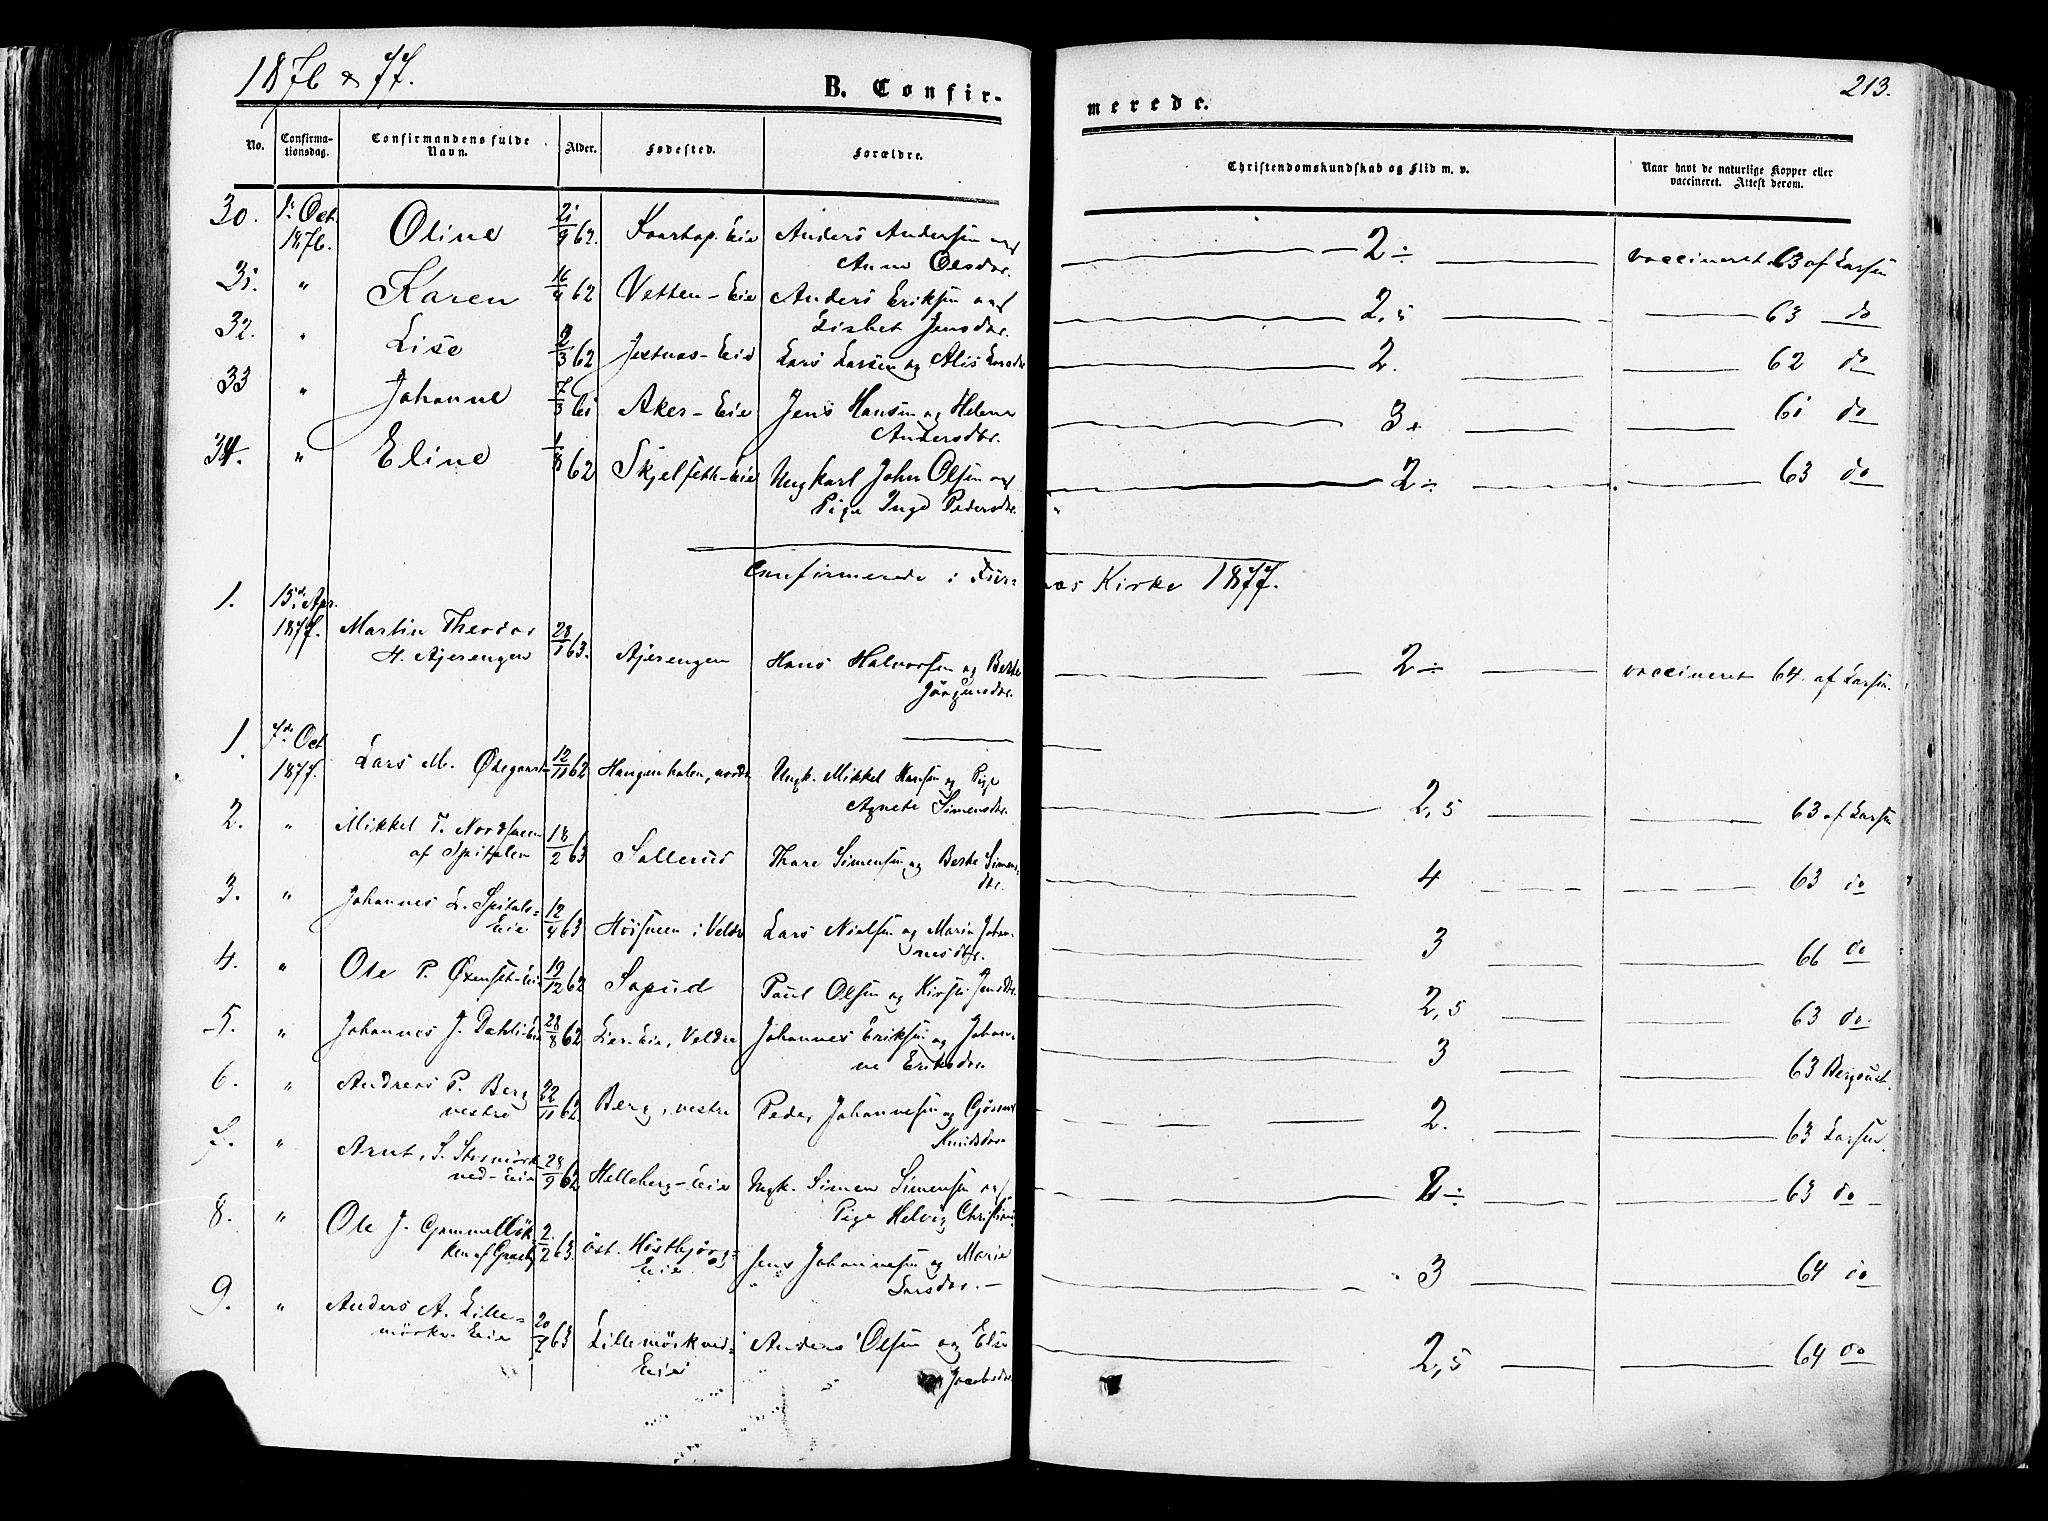 1876 & 77.
B. Confir-
merede.
213.
No.
Confirma-
tionsdag.
Confirmandens fulde
Navn.
Alder.
Fødested.
Forældre.
Christendomskundskab og Flid m. v.
Naar havt de naturlige Kopper eller
vaccineret. Attest derom.
30. 1. Oct. 1876. Oline 21/9 62. Eie Anders Andersen og
Anne Olsdtr. 2÷ vaccineret 63 af Larsen
31. " Karen 16/4 62 Vetten-Eie Anders Eriksen og
Lisbet Jensdtr. 2,5 63 do
32. " Lise 2/3 62 Jesnæs-Eie Lars Larsen og Alis Larsdtr 2. 62 do
33 " Johanne 7/3 61 Aker-Eie Jens Hansen og Helene
Andersdtr. 3+ 61 do
34. " Eline 1/8 62 Skjelseth-Eie Ungkarl John Olsen og
Pige Inge Pedersdtr. 2÷ 63 do
Confirmerede i Furnæs Kirke 1877.
1. 15de Apr.
1877. Martin Theodor
H. Ajerengen 28/1 63. Ajerengen Hans Halvorsen og Berthe
Jörgensdtr. 2÷ vaccineret 64 af Larsen.
1. 7de Oct
1877. Lars M. Ødegaard 12/11 62 Haugenholen, nordre Ungk. Mikkel Hansen og Pige
Agnete Simensdtr. 2,5 63 af Larsen
2. " Mikkel T. Nordsveen
af Spitalen 18/2 63 Sollerud Thore Simensen og Berthe Simens-
dtr. 4 63 do
3. " Johannes L. Spitals-
Eie 12/4 63 Höisveen i Veldre Lars Nielsen og Marin Johan-
nesdtr. 3 66 do
4. " Ole P. Øxenset-Eie 19/12 62 Sopud Paul Olsen og Kirsti Jensdtr. 2,5 63 do.
5. " Johannes J. Dahl Eie 28/8 62 Lier-Eie, Veldre Johannes Eriksen og Johan-
ne Eriksdtr. 3 63 Bergqust.
6. " Andreas P. Berg
vestre 22/11 62. Berg, vestre Peder Johannesen og
Knudsdtr 2. 63 Larsen.
7. " Arnt S. Stormörk-
ved-Eie 28/9 62 Helleberg-Eie Ungk. Simen Simensen og
Pige Helvig 2÷ 63 do
8. " Ole J. Gammelbök-
ken af 2/2 63. öst. Höstbjörg-
Eie Jens Johannesen og Marie
Larsdtr. 3 64 do
9. " Anders A. Lille-
mörkv. Eie 20/7 63 Lillemörkved-
Eie Anders Olsen og Else
Jacobsdtr. 2,5 64 do